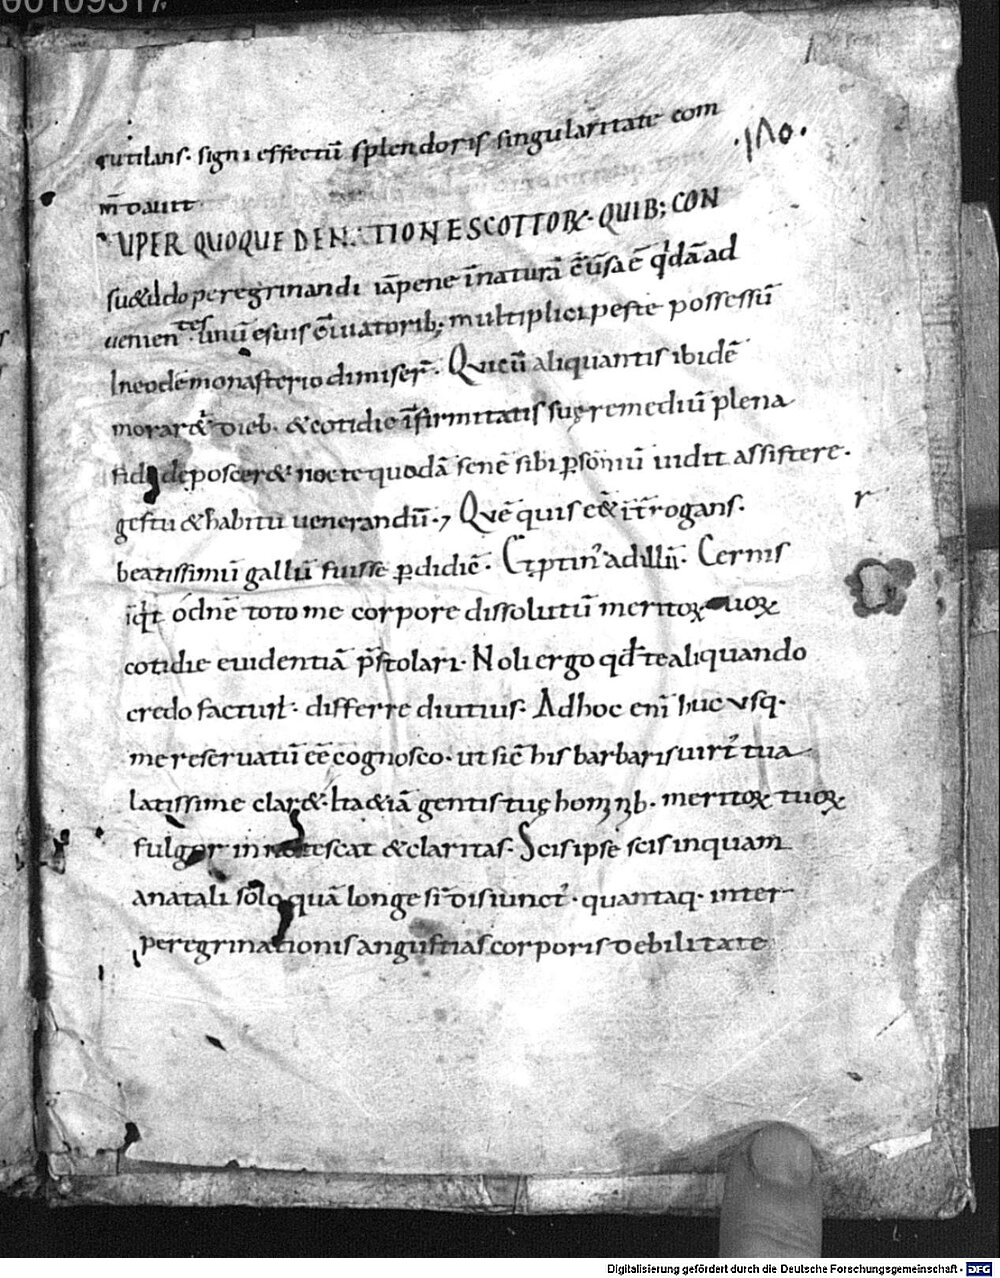 00109317
rutilans. signi effectū splendoris singularitate com
.ıño.
m̄dauit
UPER QUOQUE DE NATIONE SCOTTORꝜ. QUIB; CON
su&udo peregrinandi iāpene in naturā ċūsaē qdāad
uenientes. unū esuis cōuiatorib; multiplici peste possessū
Ineodē monasterio dimiser̄. Quicū aliquantis ibidē
morar& dieb. & cotidie īfirmitatis suę remediū plena
fide deposcer& nocte quodā senē sibi ꝑsōniū uidit assistere.
gestu & habitu uenerandū. Quē quis eēt īt̄rogans.
r
beatissimū gallū fuisse ꝑdidiē. Et ꝑtin᷒ ad illū. Cernis
īqt ō dn̄e toto me corpore dissolutū meritoꝝ tuoꝝ
cotidie euidentiā p̄stolari. Noli ergo qd te aliquando
credo facturū. differre diutius. Ad hoc enī huc vsq.
me reseruatū eē cognosco. ut sic his barbaris uirt᷒ tua
latissime clar&. Ita & iā gentis tuę hominib. meritoꝝ tuoꝝ
fulgor innotescat & claritas. Scis ipse scis inquam
a natali solo quā longe sī disiunct᷒. quantaq. inter
peregrinationis angustias corporis debilitate
Digitalisierung gefördert durch die Deutsche Forschungsgemeinschaft - DFG